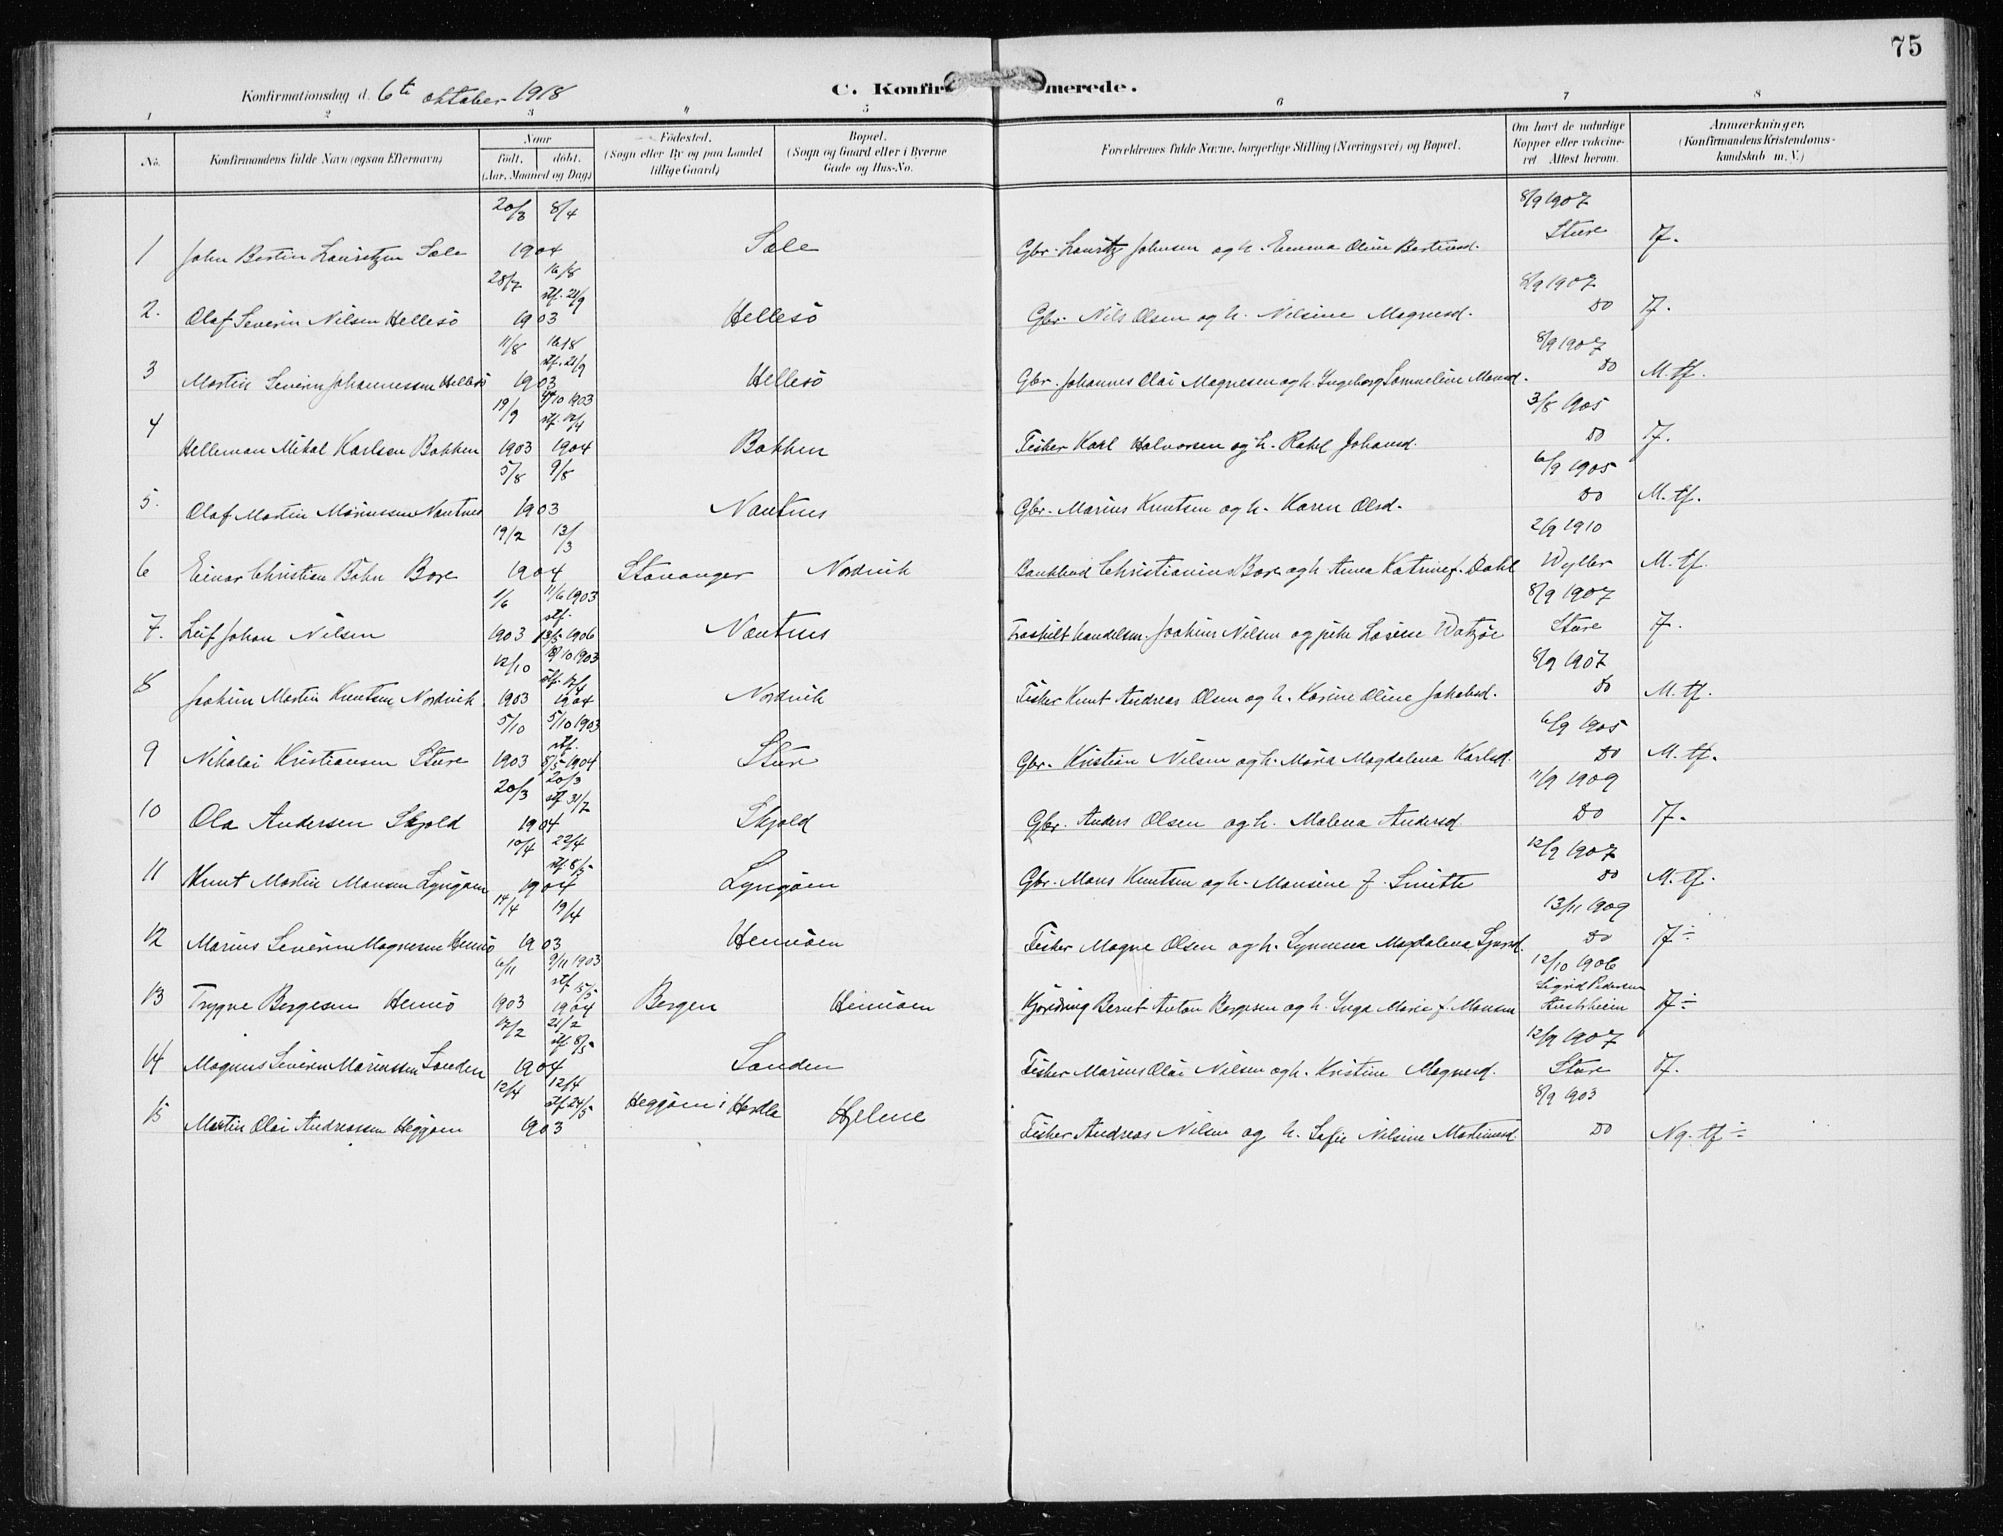 75
Konfirmationsdag d. 6te oktober 1918
C. Konfir merede.
1 2 3 4 5 6 7 8
No. Konfirmandens fulde Navn (ogsaa Efternavn) Naar født, døbt. (Aar, Maaned og Dag) Fødested. (Sogn eller By og paa Landet tillige Gaard) Bopæl. (Sogn og Gaard eller i Byerne Gade og Hus-No. Forældrenes fulde Navne, borgerlige Stilling (Næringsvei) og Bopæl. Om havt de naturlige Kopper eller vakcineret. Attest herom. Anmærkninger. (Konfirmandens Kristendomskundskab m. V.)
20/3 8/4 8/9 1907
1 John Bertin Lauritzen Sæle 1904 Sæle Gbr. Lauritz Johnsen og h. Emma Oline Bertinsd. Sture Tf.
28/7 16/8 stf. 21/9 8/9 1907
2. Olaf Severin Nilsen Hellesö 1903 Hellesö Gbr. Nils Olsen og h. Nilsine Magnesd. Do Tf.
11/8 16/8 stf. 21/9 8/9 1907
3 Martin Severin Johannessen Hellesö 1903 Hellesö Gbr. Johannes Olai Magnesen og h. Ingeborg Samueline Monsd. Do M. tf.
19/9 4/10 1903 stf. 17/4 3/8 1905
4 Helleman Mikal Karlsen Bakken 1903 1904 Bakken Fisker Karl Halvorsen og h. Rakel Johansd. Do Tf.
5/8 9/8 6/9 1905
5. Olaf Martin Mariussen Nautnes 1903 Nautnes Gbr. Marius Knutsen og h. Karen Olsd. Do M. tf.
19/2 13/3 2/9 1910
6 Einar Christian Bøhn Bore 1904 Stavanger Nordvik Christianius Bore og h. Anna Katrine f. Dahl Wyller M. tf.
1/6 11/6 1903 stf. 8/9 1907
7. Leif Johan Nilsen 1903 13/5 1906 Nautnes Joakim Nilsen og pike Lovise Watzøe Sture Tf.
12/10 18/10 1903 stf. 17/4 8/9 1907
8 Joakim Martin Knutsen Nordvik 1903 1904 Nordvik Fisker Knut Andreas Olsen og h. Karine Oline Jakobsd. Do M. tf.
5/10 5/10 1903 stf. 6/9 1905
9 Nikolai Kristiansen Sture 1903 8/5 1904 Sture Gbr. Kristian Nilsen og h. Maria Magdalena Karlsd. Do M. tf.
20/3 20/3 stf 31/7 11/9 1909
10 Ola Andersen Skjold 1904 Skjold Gbr. Anders Olsen og h. Malena Andersd. Do Tf.
10/4 22/4 stf. 8/5 12/9 1907
11 Knut Martin Monsen Lyngøen 1904 Lyngøen Gbr. Mons Knutsen og h. Monsine f. Smitts Do M. tf.
14/4 19/4 13/11 1909
12 Marius Severin Magnesen Hennö 1903 Hennøen Fisker Magne Olsen og h. Synneva Magdalena Sjursd. Do Tf ÷
6/11 9/11 1903 stf 15/5 12/10 1906
13 Trygve Børgesen Hennö 1903 1904 Bergen Hennøen Bernt Anton Børgesen og h. Inga Marie f. Monsen Sigrid Pedersen Austrheim Tf ÷
17/2 21/2 stf. 8/5 12/9 1907
14 Magnus Severin Mariussen Sanden 1904 Sanden Fisker Marius Olai Nilsen og h. Kristine Magnesd. Sture Tf.
12/4 12/4 stf 24/5 8/9 1903
15 Martin Olai Andreassen Heggøen 1903 Heggøen i Herdla Hjelme Fisker Andreas Nilsen og h. Sofie Nilsine Martinusd. Do Ng. tf ÷